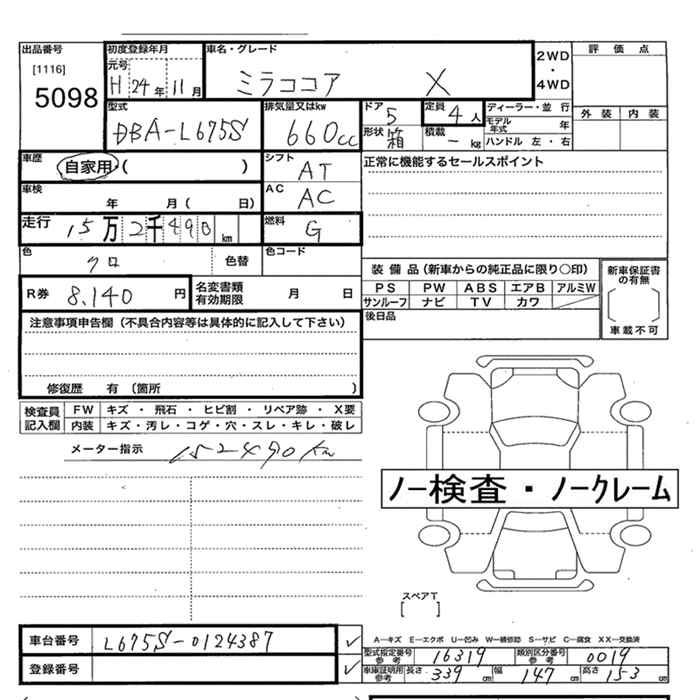 出品番号 初度登録年月 車名・グレード 2WD・4WD 評価点
[1116] 元号
5098 H 24年 11月 ミラココア X
型式 排気量又はkw ドア 5 定員 4人 ディーラー・並行 外装 内装
DBA-L675S 660cc 形状 箱 積載 -kg モデル年式 年
ハンドル 左・右
車歴 自家用 ( ) シフト AT 正常に機能するセールスポイント
車検 年 月 ( 日) AC AC
走行 15万2千490km 燃料 G
色 クロ 色替 色コード
装備品(新車からの純正品に限り○印) 新車保証書の有無
R券 8,140円 名変書類有効期限 月 日 PS PW ABS エアB アルミW
サンルーフ ナビ TV カワ 車載不可
注意事項申告欄(不具合内容等は具体的に記入して下さい) 後日品
修復歴 有 (箇所 )
検査員記入欄 FW キズ・飛石・ヒビ割・リペア跡・X要
内装 キズ・汚レ・コゲ・穴・スレ・キレ・破レ
メーター指示 152490km
ノー検査・ノークレーム
スペアT
[ ]
車台番号 L675S-0124387 ✓ A-キズ E-エクボ U-凹み W-補修跡 S-サビ C-腐食 XX-交換済
登録番号 ✓ 型式指定番号 参考 16319 類別区分番号 参考 0019
車庫証明用 参考 長さ 339cm 幅 147cm 高さ 153cm